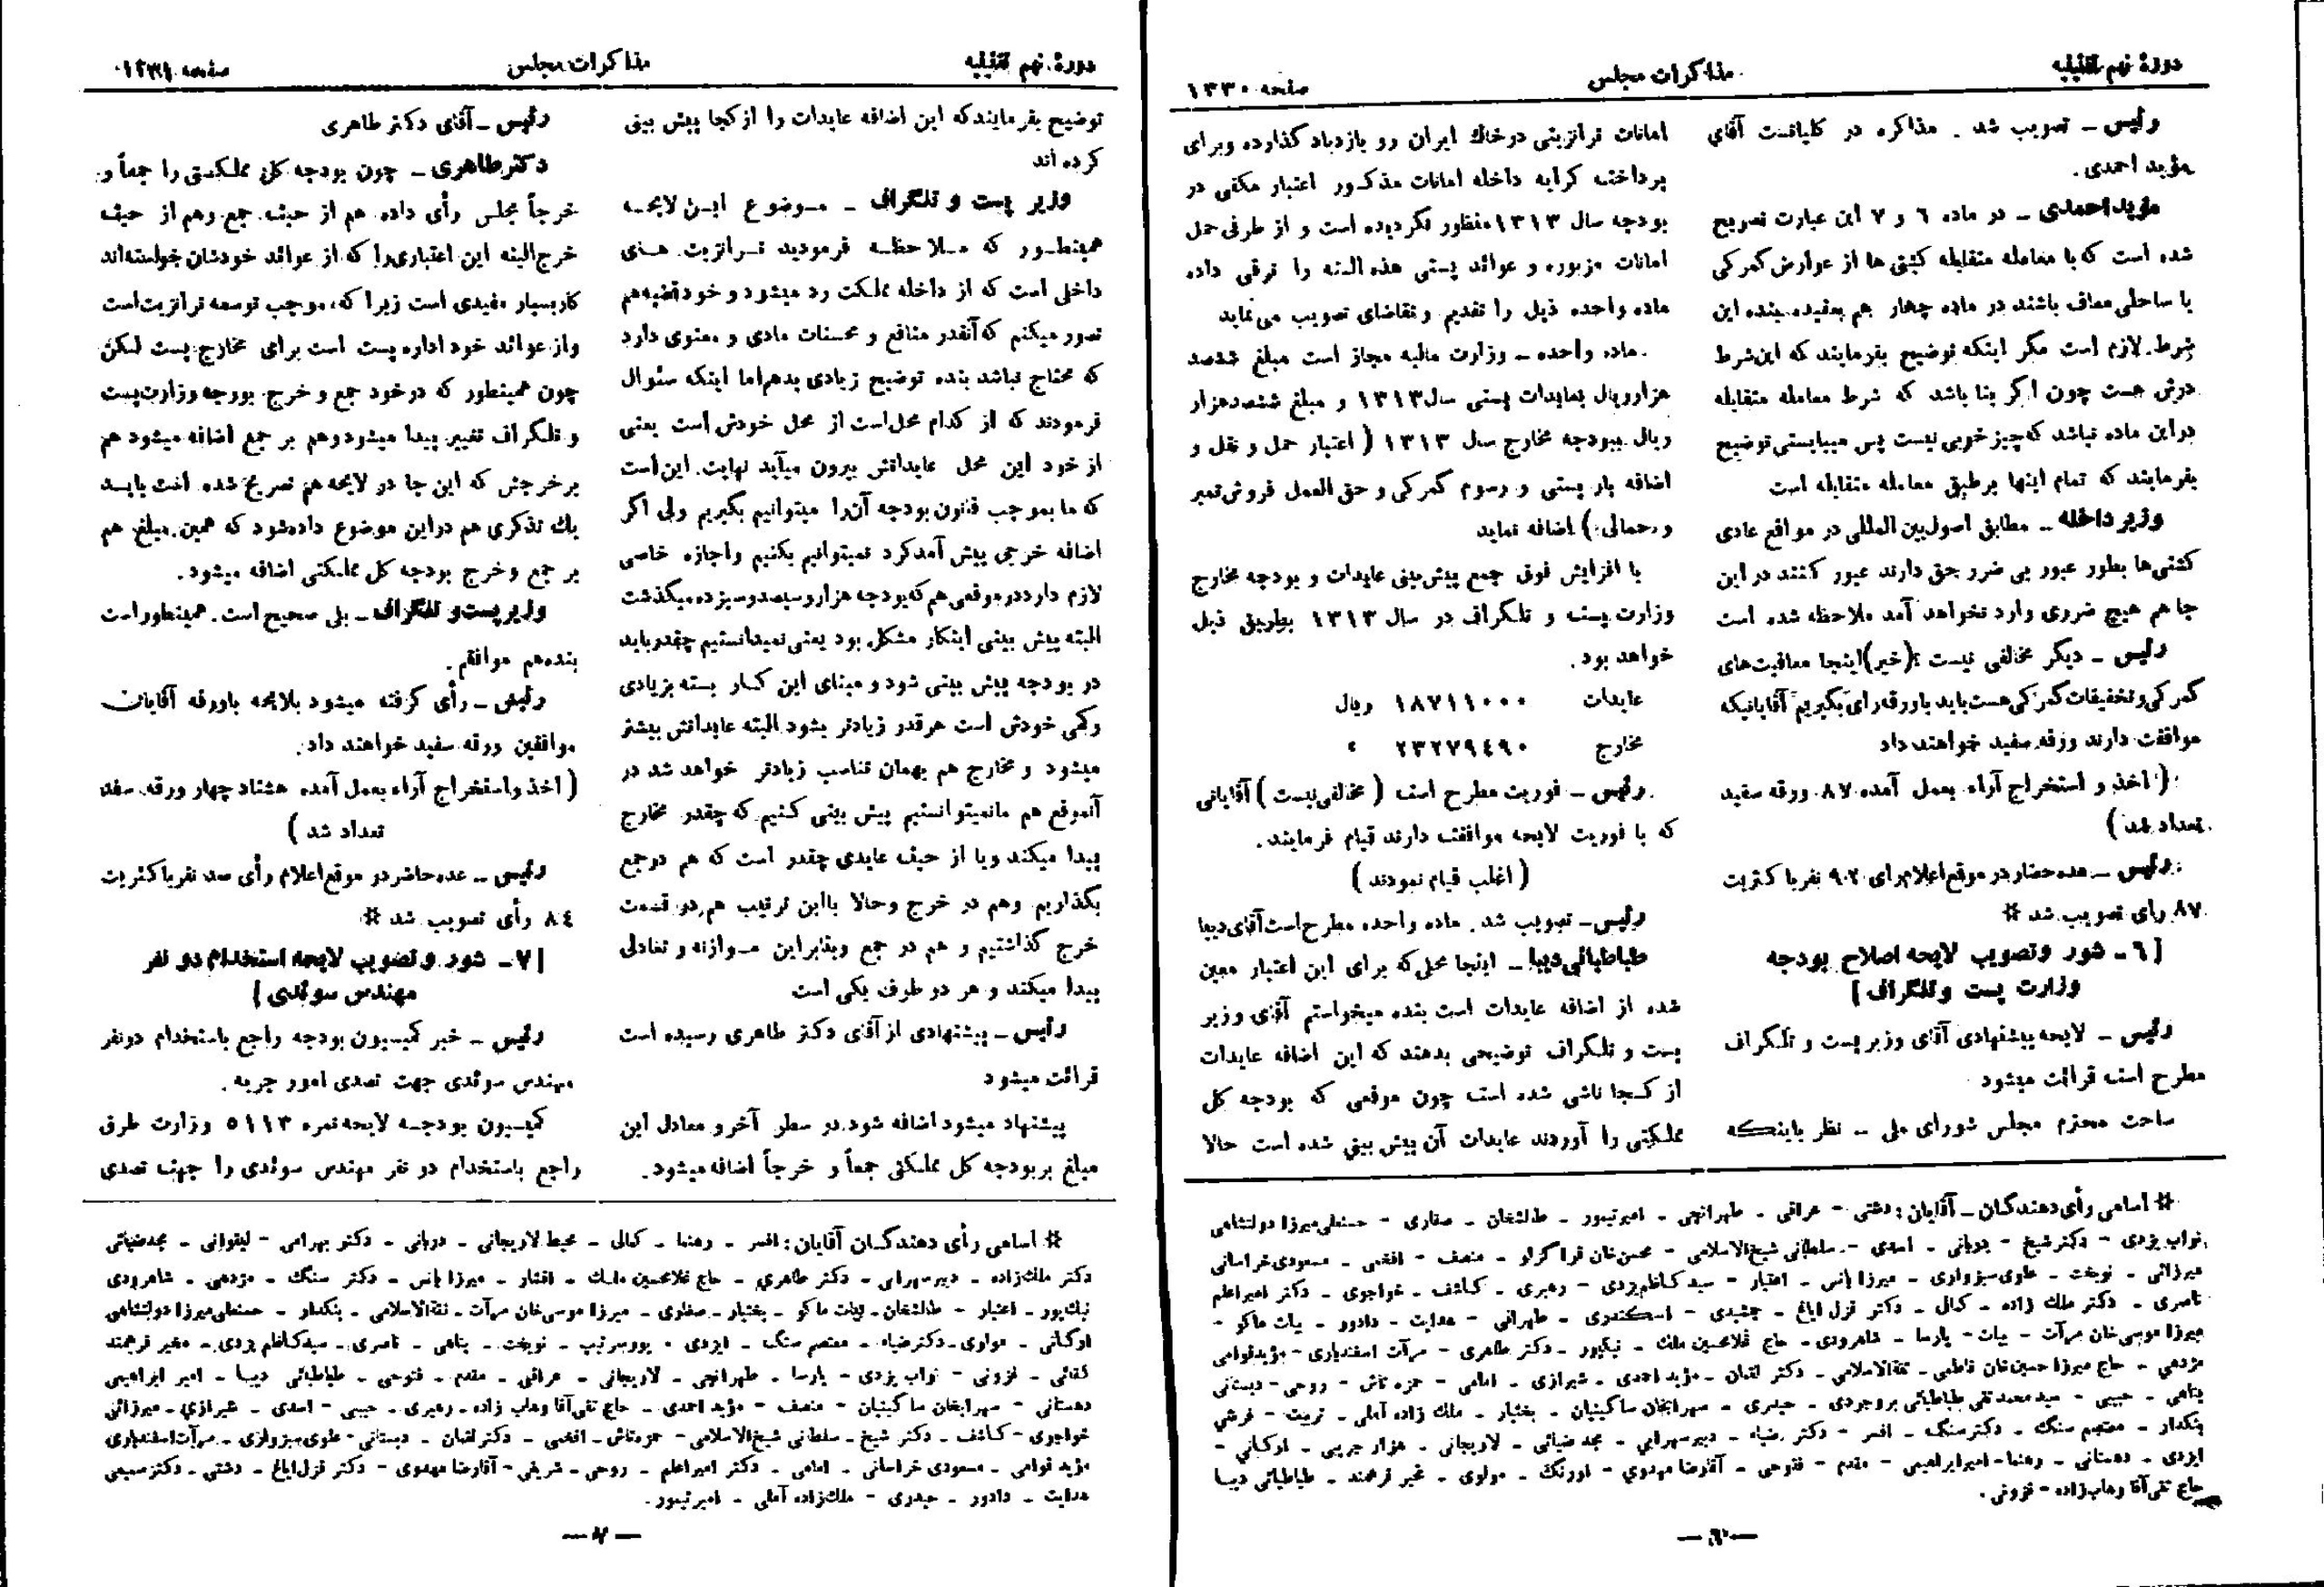 دورهٔ نهم تقنینیه
مذاکرات مجلس
صفحه ۱۳۳۰
رئیس ـ تصویب شد . مذاکره در کلیاتست آقای
مؤید احمدی .
مؤیداحمدی ـ در ماده ٦ و ۷ این عبارت تصریح
شده است که با معامله متقابله کشتی ها از عوارض گمرکی
یا ساحلی معاف باشند در ماده چهار هم بعقیده بنده این
شرط لازم است مگر اینکه توضیح بفرمایند که این شرط
درش هست چون اگر بنا باشد که شرط معامله متقابله
در این ماده نباشد که چیز خوبی نیست پس میبایستی توضیح
بفرمایند که تمام اینها بر طبق معامله متقابله است
وزیر داخله ـ مطابق اصول بین المللی در مواقع عادی
کشتی‌ها بطور عبور بی ضرر حق دارند عبور کنند در این
جا هم هیچ ضرری وارد نخواهد آمد ملاحظه شده است
رئیس ـ دیگر مخالفی نیست ؟ (خیر) اینجا معافیت‌های
گمرکی و تخفیفات گمرکی هست باید باورقه رأی بگیریم آقایانیکه
موافقت دارند ورقه سفید خواهند داد
( اخذ و استخراج آراء بعمل آمده ۸۷ ورقه سفید
تعداد شد )
رئیس ـ عده حضار در موقع اعلام رای ۹۰۲ نفر با کثریت
۸۷ رای تصویب شد #
[ ٦ ـ شور و تصویب لایحه اصلاح بودجه
وزارت پست و تلگراف ]
رئیس ـ لایحه پیشنهادی آقای وزیر پست و تلگراف
مطرح است قرائت میشود
ساحت محترم مجلس شورای ملی ـ نظر باینکه
امانات ترانزیتی در خاك ایران رو بازدیاد گذارده وبرای
پرداخت کرایه داخله امانات مذکور اعتبار مکفی در
بودجه سال ۱۳۱۳ منظور نگردیده است و از طرفی حمل
امانات مزبوره و عوائد پستی هذه السنه را ترقی داده
ماده واحده ذیل را تقدیم و تقاضای تصویب می نماید
ماده واحده ـ وزارت مالیه مجاز است مبلغ ششصد
هزار ریال بعایدات پستی سال ۱۳۱۳ و مبلغ ششصد هزار
ریال ببودجه مخارج سال ۱۳۱۳ ( اعتبار حمل و نقل و
اضافه بار پستی و رسوم گمرکی و حق العمل فروش تمبر
و حمالی ) اضافه نماید
با افزایش فوق جمع پیش بینی عایدات و بودجه مخارج
وزارت پست و تلگراف در سال ۱۳۱۳ بطریق ذیل
خواهد بود .
عایدات ۱۸۷۱۱۰۰۰ ریال
مخارج ۲۳۲۷۹٤۹۰ »
رئیس ـ فوریت مطرح است ( مخالفی نیست ) آقایانی
که با فوریت لایحه موافقت دارند قیام فرمایند .
( اغلب قیام نمودند )
رئیس ـ تصویب شد . ماده واحده مطرح است آقای دیبا
طباطبائی دیبا ـ اینجا محلی که برای این اعتبار معین
شده از اضافه عایدات است بنده میخواستم آقای وزیر
پست و تلگراف توضیحی بدهند که این اضافه عایدات
از کجا ناشی شده است چون موقعی که بودجه کل
مملکتی را آوردند عایدات آن پیش بینی شده است حالا
# اسامی رأی دهندگان ـ آقایان : دشتی ـ عراقی ـ طهرانچی ـ امیرتیمور ـ طالشخان ـ صفاری ـ حسنعلی میرزا دولتشاهی
نواب یزدی ـ دکتر شیخ ـ دربانی ـ اسدی ـ سلطانی شیخ الاسلامی ـ محسن خان قراگزلو ـ منصف ـ افخمی ـ مسعودی خراسانی
میرزائی ـ نوبخت ـ علوی سبزواری ـ میرزا یانس ـ اعتبار ـ سید کاظم یزدی ـ رهبری ـ کاشف ـ خواجوی ـ دکتر امیراعلم
ناصری ـ دکتر ملك زاده ـ کمالی ـ دکتر قزل ایاغ ـ جمشیدی ـ اسکندری ـ طهرانی ـ هدایت ـ دادور ـ بیات ماکو ـ
میرزا موسی خان مرآت ـ بیات ـ پارسا ـ شاهرودی ـ حاج غلامحسین ملك ـ نیکپور ـ دکتر طاهری ـ مرآت اسفندیاری ـ مؤید قوامی
مژدهی ـ حاج میرزا حسین خان فاطمی ـ ثقة الاسلامی ـ دکتر لقمان ـ مؤید احمدی ـ شیرازی ـ امامی ـ حمزه تاش ـ روحی ـ دبستانی
پناهی ـ حبیبی ـ سید محمد تقی طباطبائی بروجردی ـ حیدری ـ سهرابخان ساگینیان ـ بختیار ـ ملك زاده آملی ـ تربیت ـ فرشی
بنکدار ـ معتصم سنگ ـ دکتر سنگ ـ افسر ـ دکتر ضیاء ـ دبیر سهرابی ـ مجد ضیائی ـ لاریجانی ـ هزار جریبی ـ اورکانی ـ
ایزدی ـ دهستانی ـ رهنما ـ امیر ابراهیمی ـ مقدم ـ فتوحی ـ آقا رضا مهدوی ـ اورنگ ـ مولوی ـ مخبر فرهمند ـ طباطبائی دیبا
حاج تقی آقا وهاب زاده ـ قزونی .
— ٦ —
دورهٔ نهم تقنینیه
مذاکرات مجلس
صفحه ۱۳۳۱
توضیح بفرمایند که این اضافه عایدات را از کجا پیش بینی
کرده اند
وزیر پست و تلگراف ـ موضوع این لایحه
همینطور که ملاحظه فرمودید ترانزیت هندی
داخلی است که از داخله مملکت رد میشود و خود قضیه هم
تصور میکنم که آنقدر منافع و محسنات مادی و معنوی دارد
که محتاج نباشد بنده توضیح زیادی بدهم اما اینکه سئوال
فرمودند که از کدام محل است از محل خودش است یعنی
از خود این محل عایداتش بیرون میآید نهایت این است
که ما بموجب قانون بودجه آن را میتوانیم بگیریم ولی اگر
اضافه خرجی پیش آمد کرد نمیتوانیم بکنیم واجازه خاصی
لازم دارد در موقعی هم که بودجه هزار و سیصد و سیزده میگذشت
البته پیش بینی اینکار مشکل بود یعنی نمیدانستیم چقدر باید
در بودجه پیش بینی شود و مبنای این کار بسته بزیادی
وکمی خودش است هر قدر زیادتر بشود البته عایداتش بیشتر
میشود و مخارج هم بهمان تناسب زیادتر خواهد شد در
آنموقع هم ما نمیتوانستیم پیش بینی کنیم که چقدر مخارج
پیدا میکند ویا از حیث عایدی چقدر است که هم در جمع
بگذاریم وهم در خرج وحالا بااین ترتیب هم در قسمت
خرج گذاشتیم و هم در جمع وبنابراین موازنه و تعادلی
پیدا میکند و هر دو طرف یکی است
رئیس ـ پیشنهادی از آقای دکتر طاهری رسیده است
قرائت میشود
پیشنهاد میشود اضافه شود در سطر آخر و معادل این
مبلغ بر بودجه کل مملکتی جمعاً و خرجاً اضافه میشود .
رئیس ـ آقای دکتر طاهری
دکتر طاهری ـ چون بودجه کل مملکتی را جمعاً و
خرجاً مجلس رأی داده هم از حیث جمع وهم از حیث
خرج البته این اعتباری را که از عوائد خودشان خواسته‌اند
کار بسیار مفیدی است زیرا که موجب توسعه ترانزیت است
واز عوائد خود اداره پست است برای مخارج پست لکن
چون همینطور که در خود جمع و خرج بودجه وزارت پست
و تلگراف تغییر پیدا میشود وهم بر جمع اضافه میشود هم
بر خرجش که این جا در لایحه هم تصریح شده است باید
یك تذکری هم در این موضوع داده شود که همین مبلغ هم
بر جمع وخرج بودجه کل مملکتی اضافه میشود .
وزیر پست و تلگراف ـ بلی صحیح است . همینطور است
بنده هم موافقم .
رئیس ـ رأی گرفته میشود بلایحه باورقه آقایان
موافقین ورقه سفید خواهند داد .
( اخذ و استخراج آراء بعمل آمده هشتاد چهار ورقه سفید
تعداد شد )
رئیس ـ عده حاضر در موقع اعلام رأی صد نفر با کثریت
۸٤ رأی تصویب شد #
[ ۷ ـ شور و تصویب لایحه استخدام دو نفر
مهندس سوئدی ]
رئیس ـ خبر کمیسیون بودجه راجع باستخدام دو نفر
مهندس سوئدی جهت تصدی امور جریه .
کمیسیون بودجه لایحه نمره ٥۱۱۳ وزارت طرق
راجع باستخدام دو نفر مهندس سوئدی را جهت تصدی
# اسامی رأی دهندگان آقایان : افسر ـ رهنما ـ کمالی ـ محیط لاریجانی ـ دربانی ـ دکتر بهرامی ـ لیقوانی ـ مجدضیائی
دکتر ملك زاده ـ دبیر سهرابی ـ دکتر طاهری ـ حاج غلامحسین ملك ـ افشار ـ میرزا یانس ـ دکتر سنگ ـ مژدهی ـ شاهرودی
نیك پور ـ اعتبار ـ طالشخان ـ بیات ماکو ـ بختیار ـ صفاری ـ میرزا موسی خان مرآت ـ ثقة الاسلامی ـ بنکدار ـ حسنعلی میرزا دولتشاهی
اورکانی ـ مولوی ـ دکتر ضیاء ـ معتصم سنگ ـ ایزدی ـ پور سرتیپ ـ نوبخت ـ پناهی ـ ناصری ـ سید کاظم یزدی ـ مخبر فرهمند
کفائی ـ قزونی ـ نواب یزدی ـ پارسا ـ طهرانچی ـ لاریجانی ـ عراقی ـ مقدم ـ فتوحی ـ طباطبائی دیبا ـ امیر ابراهیمی
دهستانی ـ سهرابخان ساگینیان ـ منصف ـ مؤید احمدی ـ حاج تقی آقا وهاب زاده ـ رهبری ـ حبیبی ـ اسدی ـ شیرازی ـ میرزائی
خواجوی ـ کاشف ـ دکتر شیخ ـ سلطانی شیخ الاسلامی ـ حمزه تاش ـ افخمی ـ دکتر لقمان ـ دبستانی ـ علوی سبزواری ـ مرآت اسفندیاری
مؤید قوامی ـ مسعودی خراسانی ـ امامی ـ دکتر امیر اعلم ـ روحی ـ شریفی ـ آقا رضا مهدوی ـ دکتر قزل ایاغ ـ دشتی ـ دکتر سمیعی
هدایت ـ دادور ـ حیدری ـ ملك زاده آملی ـ امیر تیمور .
— ۷ —